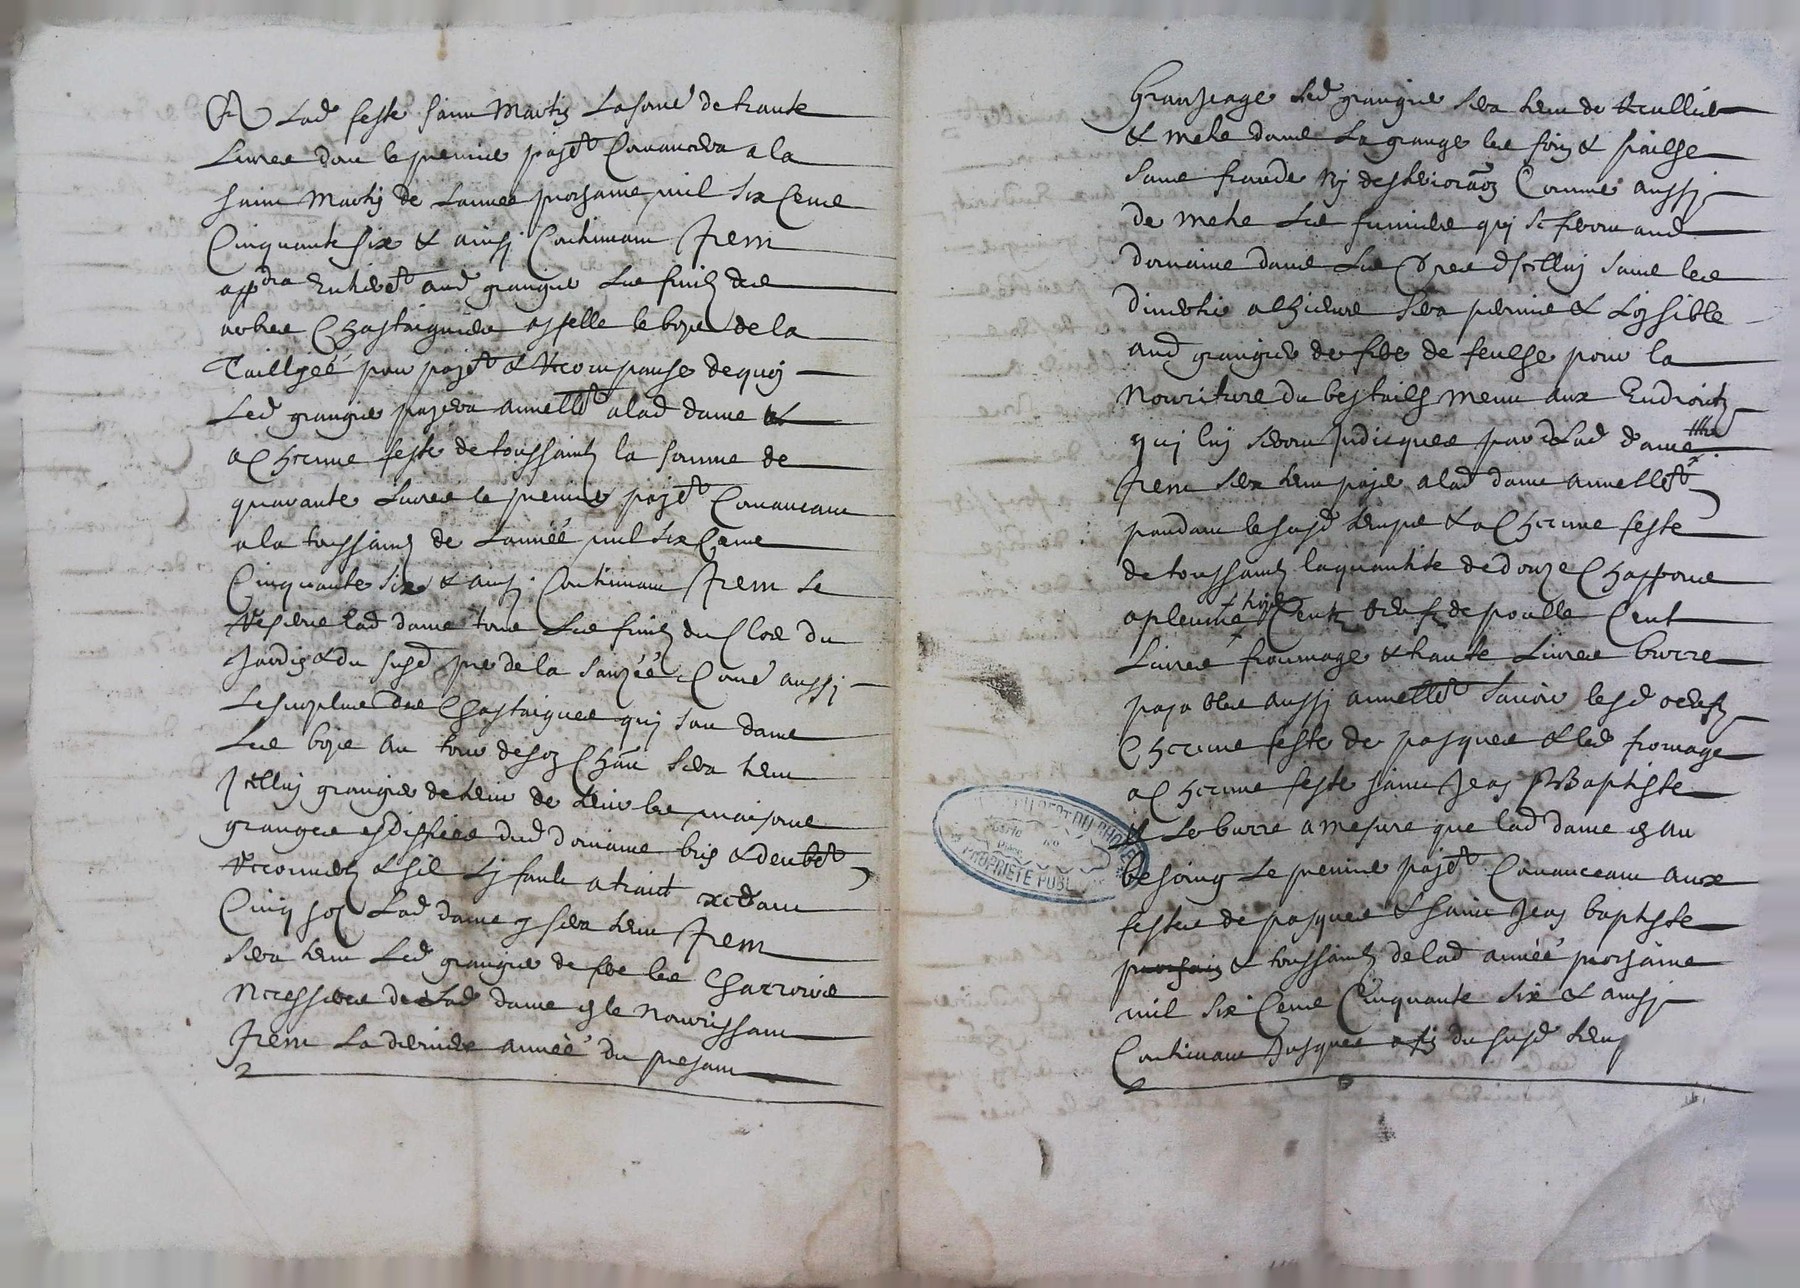 A lad feste sainct Martin la some de trante
Livres dont le premier payet Comancera a la
saint Martin de lannee prochaine mil six Cens
Cinquante six & ainsi Continuant Item
appdra Entieret aud grangier les fruicz des
arbres Chastaigniers appelle le boys de la
Taillyéé pour payet & recompanse de quoy
Led grangier payera annellet a lad dame
a Chacune feste de toussainctz la somme de
quarante Livres le premier payet Comanceant
a la toussainctz de Lannéé mil six Cens
Cinquante six & ainsi Continuant Item se
reserve lad dame tous Les fruicz du Clos du
Jardin & du susd pre de la Come aussi
Le surplus des Chastaignes qui sont dans
Les boys au tour de son Chau sera tenu
Icelluy grangier de tenir les maisons
granges & ediffices dud domaine bien & deubet
& sil y fault
Cinq solz Lad dame y sera tenu Item
sera tenu Led grangier de fre les Charrois
Necesseres de Lad dame en le Nourrissant
Item La derniere annéé du presant
Granjeage Led grangier sera tenu de recullir
& metre dans La grange les foin & pailhe
sans fraude Ny desterioraon Comme aussi
de metre Les fumiers qui se feront aud
domaine dans Les terres dicelluy sans les
divertir alhieurs sera permis & Loysible
aud grangier de fre de feulhe pour la
Nourriture du bestailh menu aux Endroictz
qui luy seront Indicques par Lad dame
Item sera tenu payer a lad dame annellet
pandant le susd temps & a Chacune feste
de toussainctz la quantite de douze Chappons
a plume Centz oeufz de poulle Cent
Livres froumage & trante Livres burre
payables aussi annellet savoir lesd oeufz
Chacune feste de pasques & led fromage
a Chacune feste sainct Jean Baptiste
& Le burre a mesure que lad dame en au
besoing Le premier payet Comanceant aux
festes de pasques & sainct Jean baptiste
prochain & toussainctz de lad annéé prochaine
mil six Cens Cinquante six & ainsi
Continuant Jusques a fin du susd temps
PROPRIETE PUBL